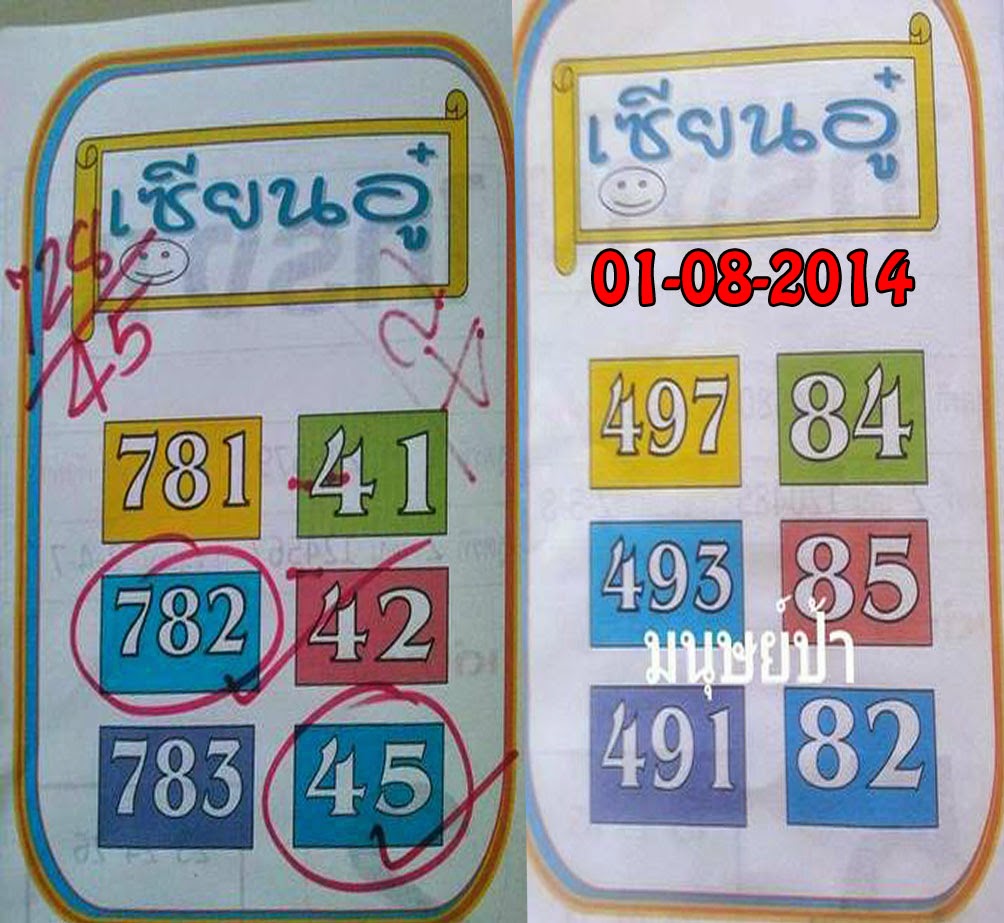 เซียนอู๋
728
45
781 41
782 42
783 45
เซียนอู๋
01-08-2014
497 84
493 85
มนุษย์ป้า
491 82